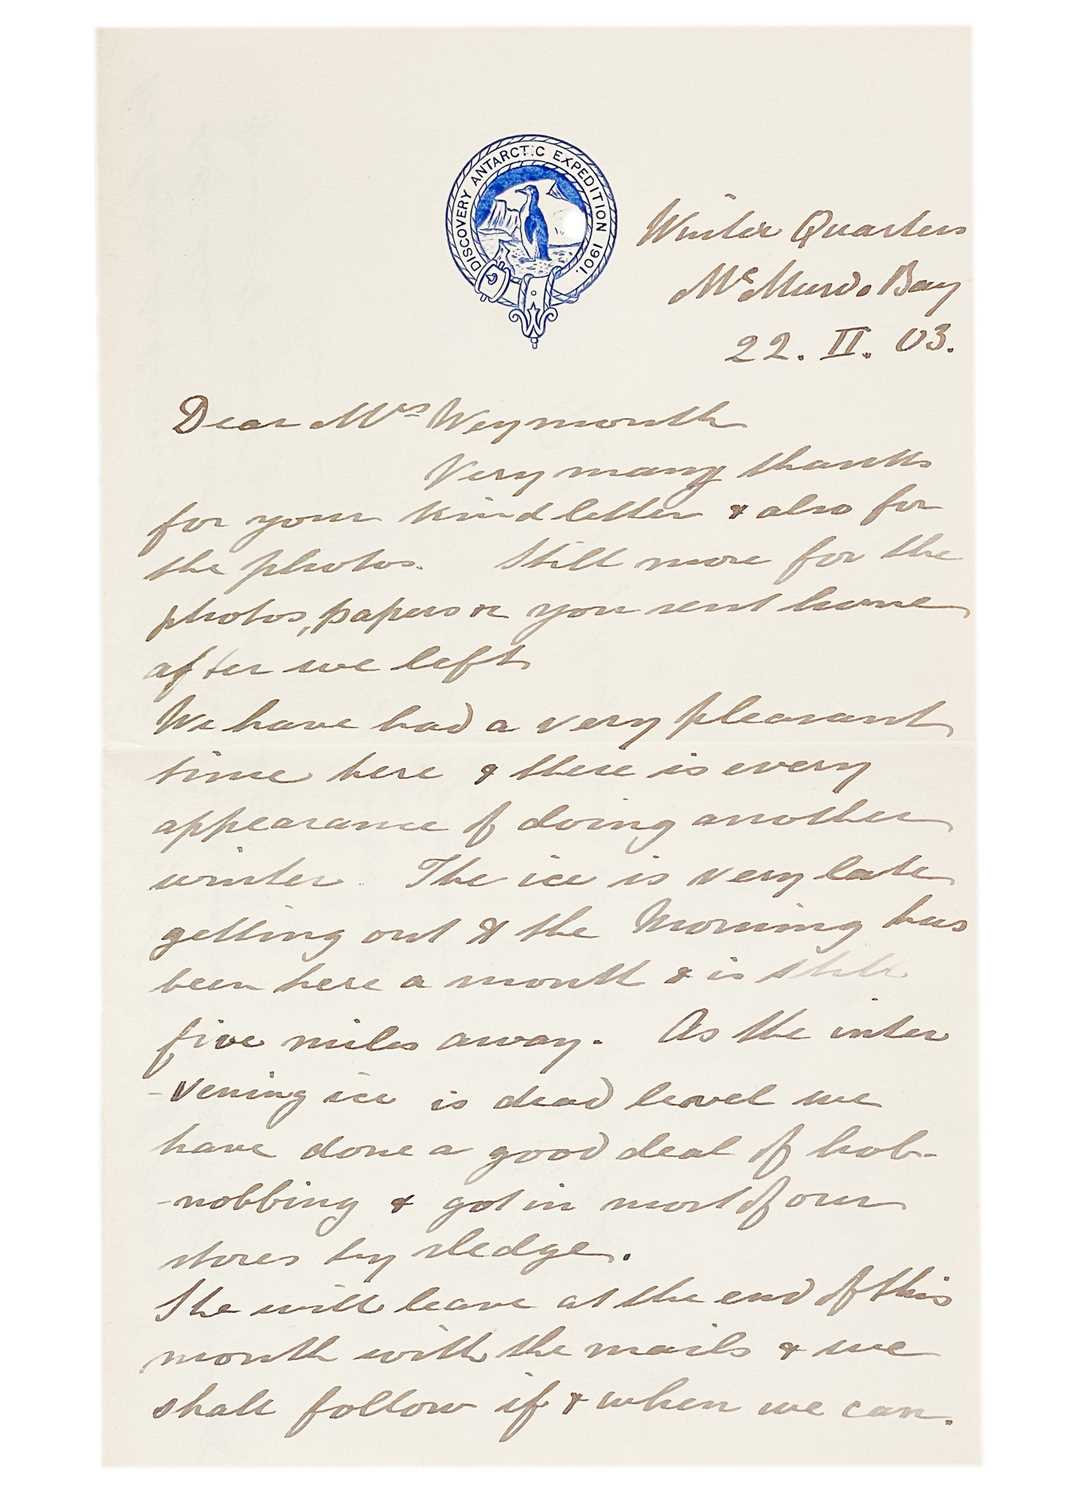 DISCOVERY ANTARCTIC EXPEDITION 1901.
Winter Quarters
McMurdo Bay
22. II. 03.
Dear Mrs Weymouth
Very many thanks
for your kind letter & also for
the photos. Still more for the
photos, papers &c you sent home
after we left
We have had a very pleasant
time here & there is every
appearance of doing another
winter. The ice is very late
getting out & the Morning has
been here a month & is still
five miles away. As the inter
-vening ice is dead level we
have done a good deal of hob-
-nobbing & got in most of our
stores by sledge.
She will leave at the end of this
month with the mails & we
shall follow if & when we can.